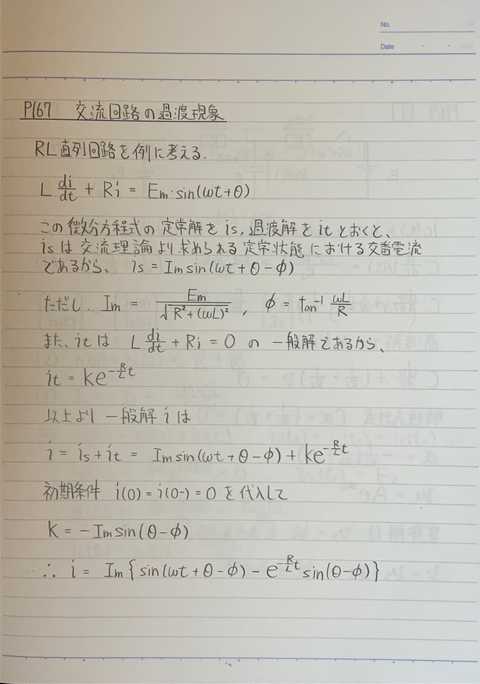 No.
Date
P167 交流回路の過渡現象
RL直列回路を例に考える.
L di/dt + Ri = Em・sin(ωt+θ)
この微分方程式の定常解をis, 過渡解をitとおくと、
isは交流理論より求められる定常状態における交番電流
であるから、 is = Im sin(ωt + θ - φ)
ただし、 Im = Em/√(R²+(ωL)²) , φ = tan⁻¹ ωL/R
また、itは L di/dt + Ri = 0 の一般解であるから、
it = ke^(-R/L t)
以上より一般解iは
i = is + it = Im sin(ωt + θ - φ) + ke^(-R/L t)
初期条件 i(0) = i(0-) = 0 を代入して
K = - Im sin(θ - φ)
∴ i = Im { sin(ωt + θ - φ) - e^(-R/L t) sin(θ - φ) }